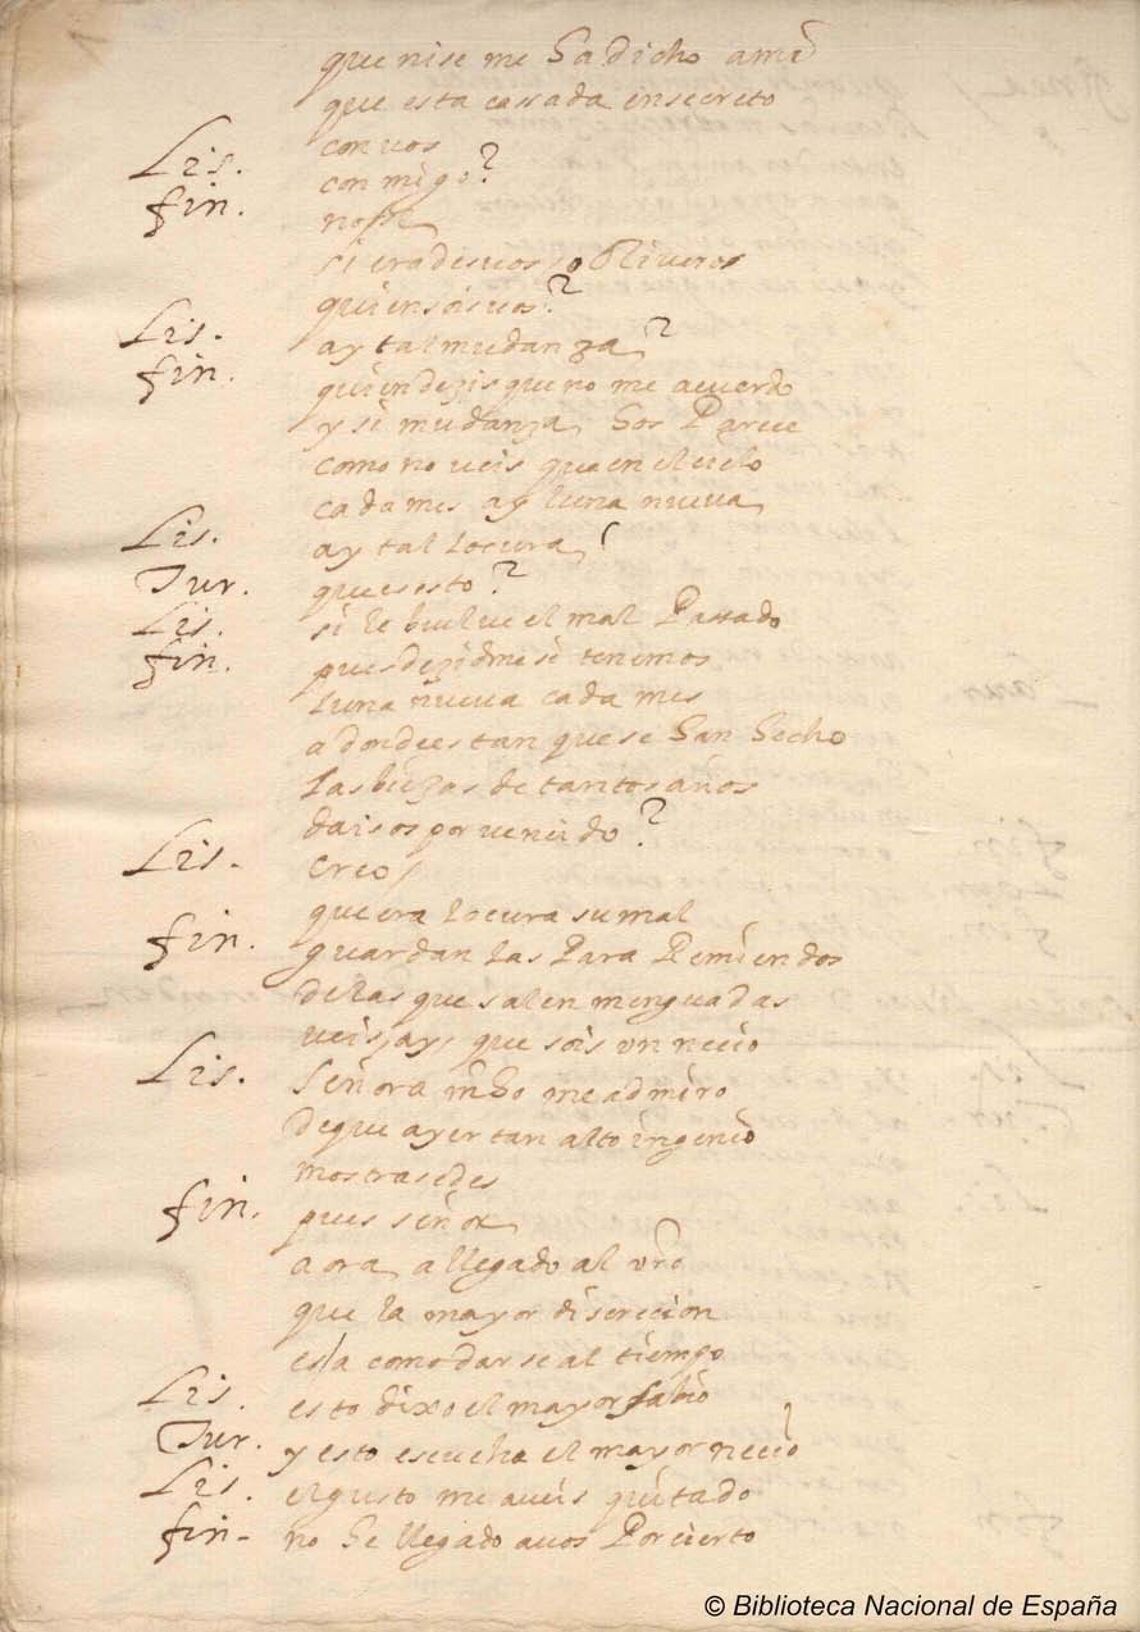 que nise me ha dicho a mi
que esta cassada en secreto
con uos
Lis. con migo?
fin. no se
si era de uos, o Oliueros
quien sois uos?
Lis. ay tal mudanza?
fin. quien dezis que no me acuerdo
y si mudanza hos Parece
como no ueis que en el cielo
cada mes ay luna nueua
Lis. ay tal locura!
Tur. que es esto?
Lis. si le buelue el mal Passado
fin. pues dezidme si tenemos
luna nueua cada mes
adonde estan que se han hecho
las biejas de tantos años
dais os por uencido?
Lis. creo
que era locura su mal
fin. guardan las Para Remiendos
de las que salen menguadas
ueis, ay, que sois un necio
Lis. Señora mho me admiro
de que ayer tan alto ingenio
mostrasedes
fin. pues señor
aora a llegado al vro
que la mayor discrecion
es la comodarse al tiempo
Lis. esto dixo el mayor sabio
Tur. y esto escucha el mayor necio
Lis. el gusto me aueis quitado
fin. no he llegado a uos Por cierto
© Biblioteca Nacional de España